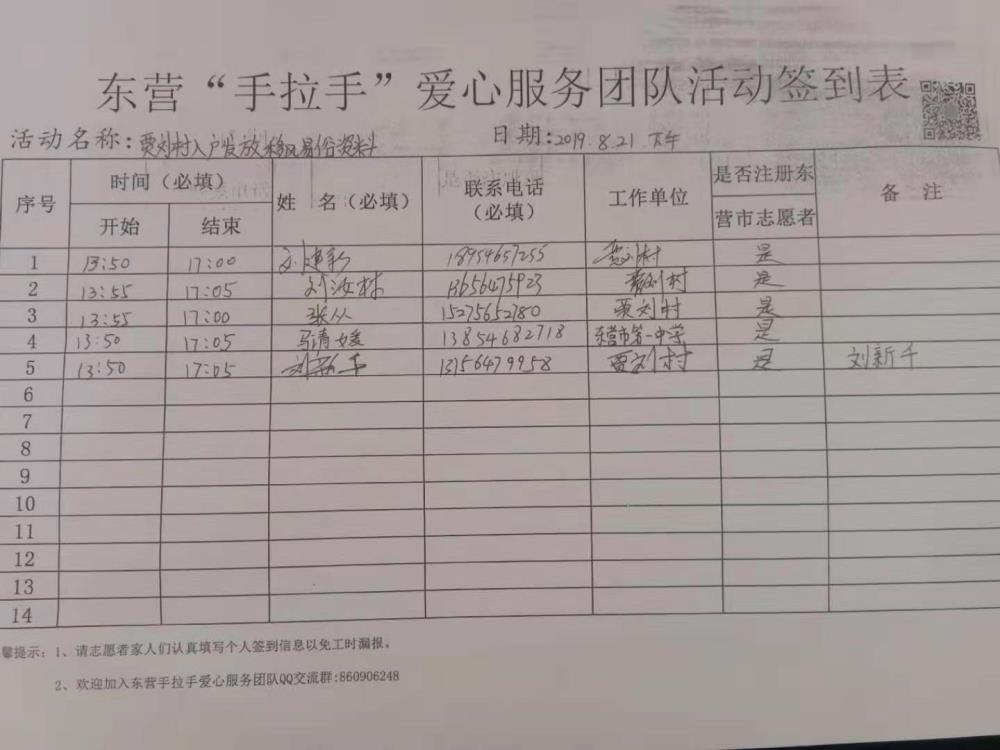 东营“手拉手”爱心服务团队活动签到表
活动名称:贾刘村入户发放移风易俗资料 日期:2019.8.21.下午
序号 时间（必填） 姓 名（必填） 联系电话（必填） 工作单位 是否注册东营市志愿者 备 注
开始 结束
1 13:50 17:00 刘建新 18954657255 贾刘村 是
2 13:55 17:05 刘汝林 13656475923 贾刘村 是
3 13:55 17:00 张从 15275652780 贾刘村 是
4 13:50 17:05 马清媛 13854682718 东营市第一中学 是
5 13:50 17:05 刘新千 13156479958 贾刘村 是 刘新千
6
7
8
9
10
11
12
13
14
馨提示: 1、请志愿者家人们认真填写个人签到信息以免工时漏报。
2、欢迎加入东营手拉手爱心服务团队QQ交流群:860906248